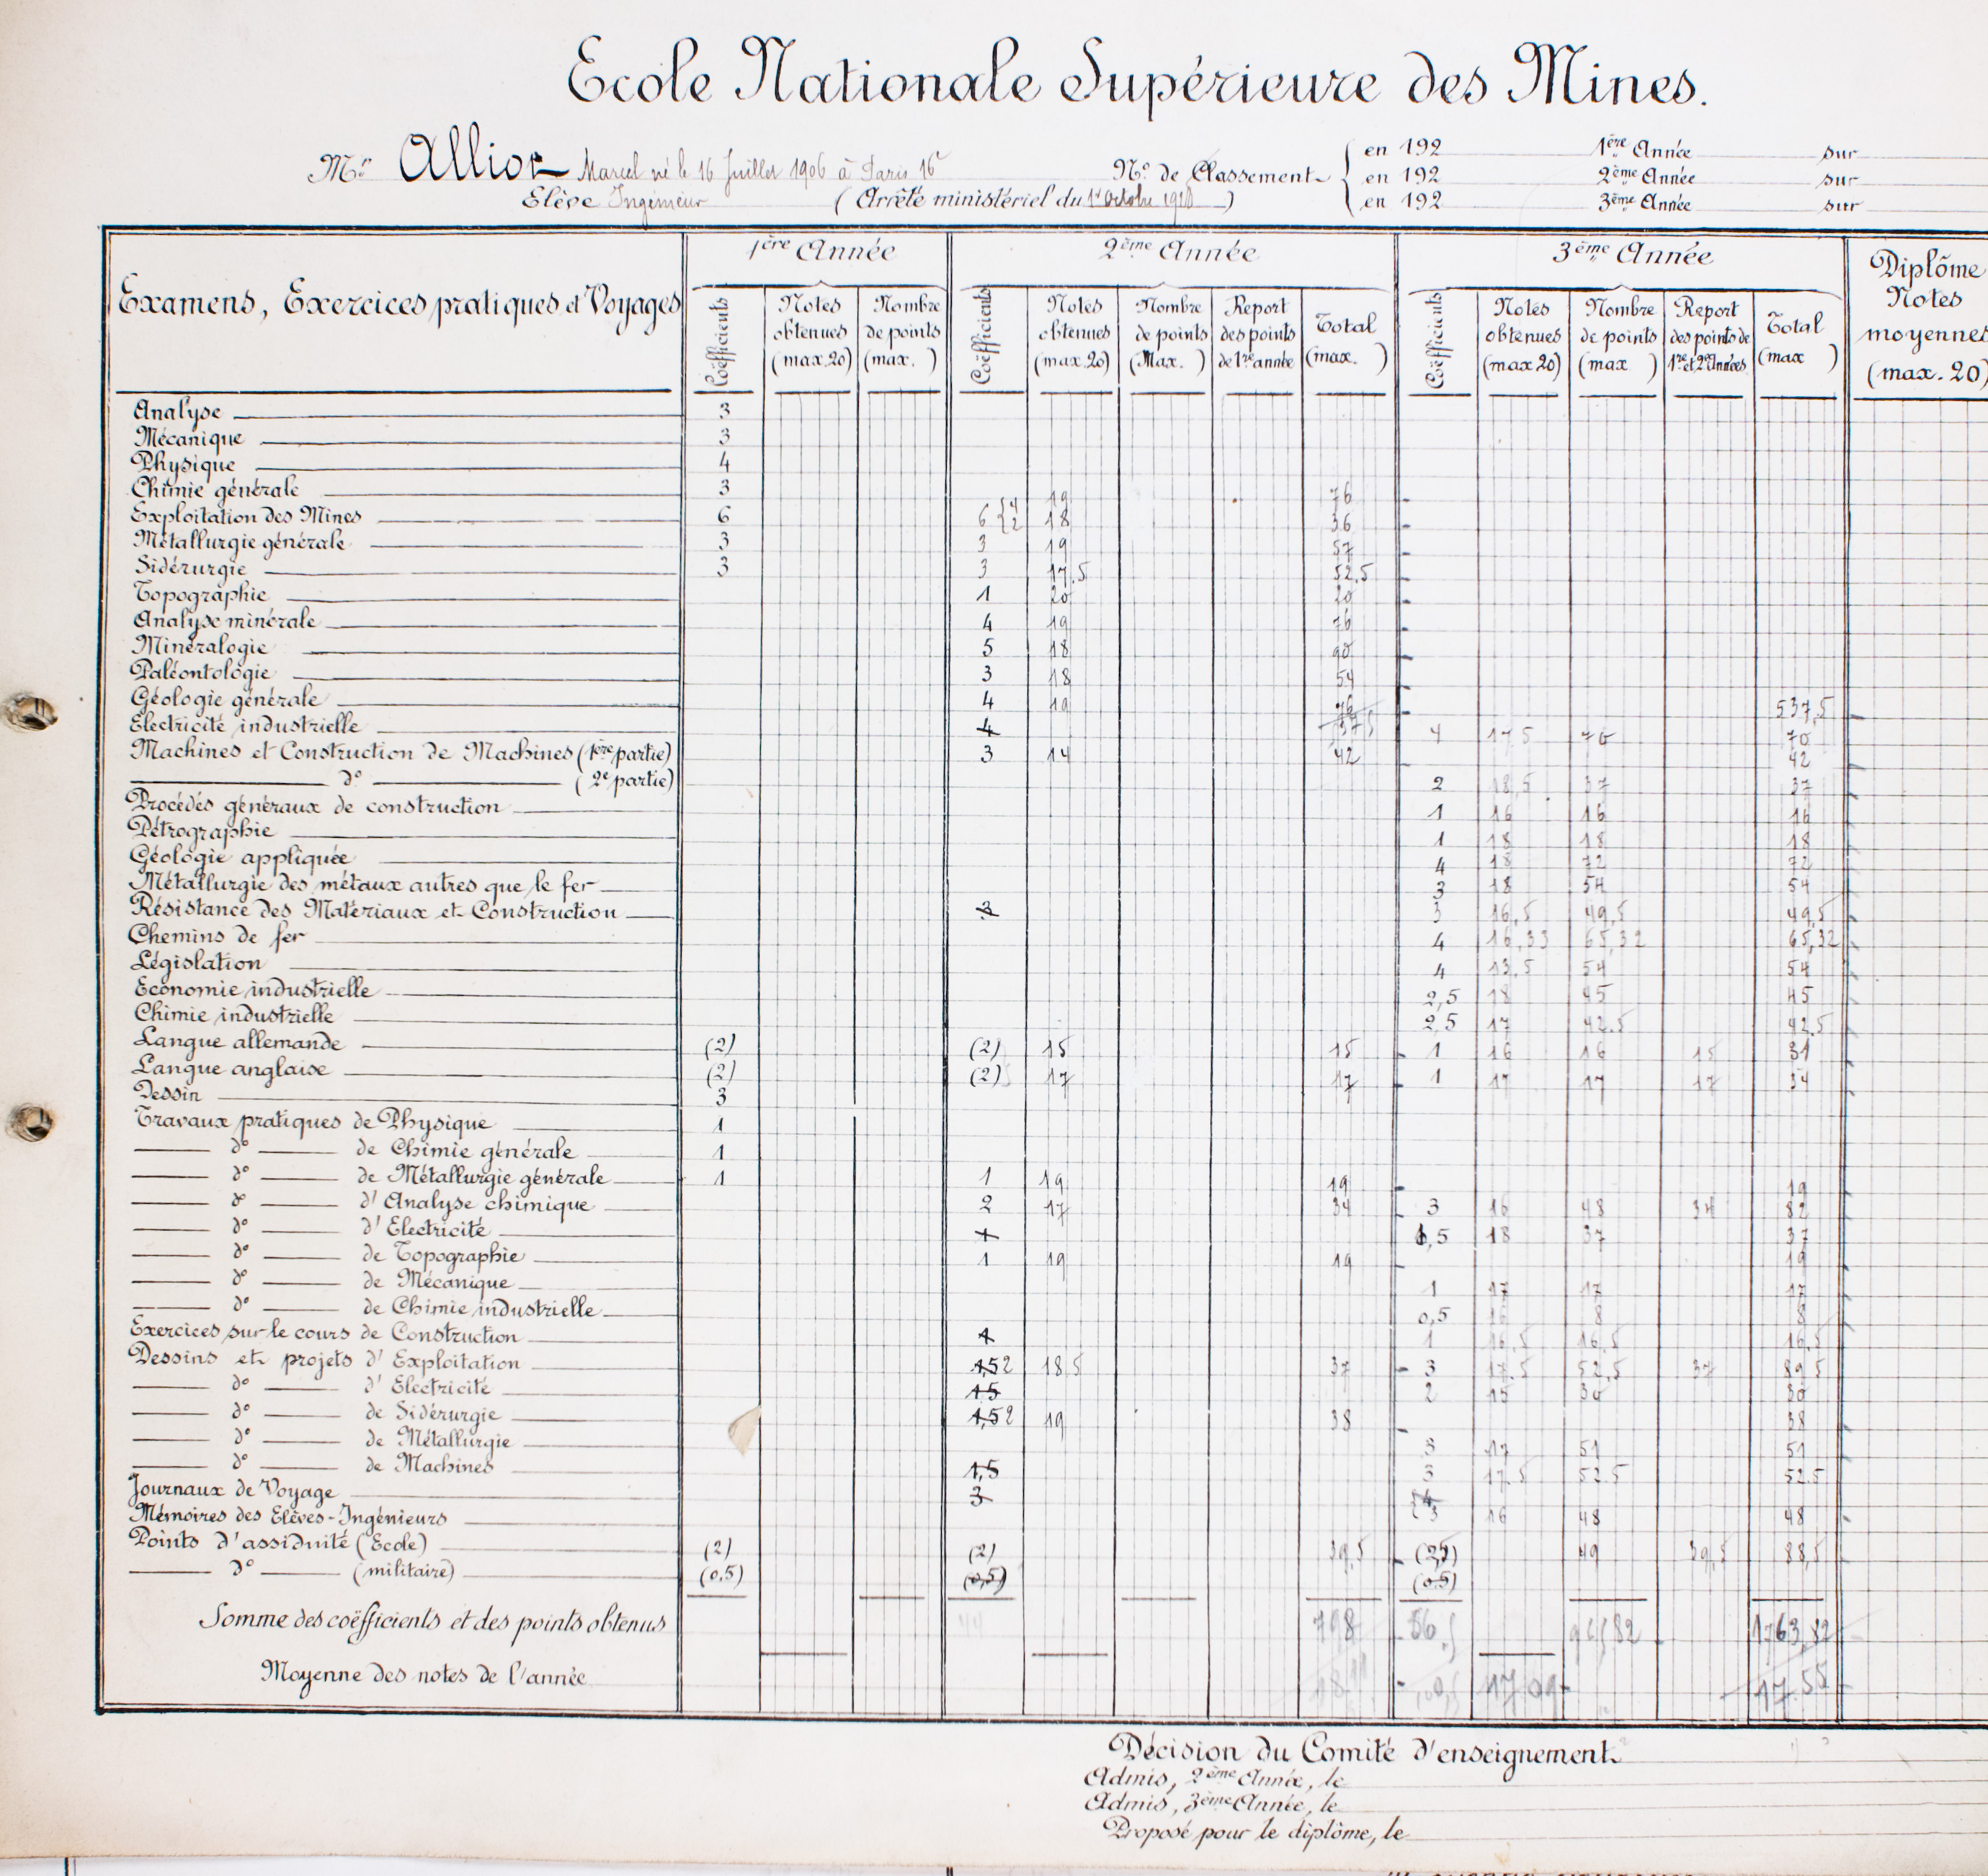 Ecole Nationale Supérieure des Mines.
Mr. Marcel né le 16 Juillet 1906 à Paris 16e
Elève Ingénieur (Arrêté ministériel du 1er Octobre )
No. de Classement { en 192 1ère Année sur
en 192 2ème Année sur
en 192 3ème Année sur
Examens, Exercices pratiques et Voyages
1ère Année
Coëfficients Notes obtenues (max. 20) Nombre de points (max. )
2ème Année
Coëfficients Notes obtenues (max. 20) Nombre de points (Max. ) Report des points de 1re année Total (max. )
3ème Année
Coëfficients Notes obtenues (max 20) Nombre de points (max ) Report des points de 1re et 2e Années Total (max )
Diplôme Notes moyennes (max. 20)
Analyse 3
Mécanique 3
Physique 4
Chimie générale 3
Exploitation des Mines 6 6 { 4 19 76
2 18 36
Métallurgie générale 3 3 19 57
Sidérurgie 3 3 17,5 52,5
Topographie 1 20 20
Analyse minérale 4 19 76
Minéralogie 5 18 90
Paléontologie 3 18 54
Géologie générale 4 19 76 537,5
Electricité industrielle 4 4 17,5 70 70
Machines et Construction de Machines (1ère partie) 3 14 42 42
do (2e partie) 2 18,5 37 37
Procédés généraux de construction 1 16 16 16
Pétrographie 1 18 18 18
Géologie appliquée 4 18 72 72
Métallurgie des métaux autres que le fer 3 18 54 54
Résistance des Matériaux et Construction 3 3 16,5 49,5 49,5
Chemins de fer 4 16,33 65,32 65,32
Législation 4 13,5 54 54
Economie industrielle 2,5 18 45 45
Chimie industrielle 2,5 17 42.5 42.5
Langue allemande (2) (2) 15 15 1 16 16 15 31
Langue anglaise (2) (2) 17 17 1 17 17 17 34
Dessin 3
Travaux pratiques de Physique 1
do de Chimie générale 1
do de Métallurgie générale 1 1 19 19 19
do d'Analyse chimique 2 17 34 3 16 48 34 82
do d'Electricité 1 ,5 18 37 37
do de Topographie 1 19 19 19
do de Mécanique 1 17 17 17
do de Chimie industrielle 0,5 16 8 8
Exercices sur le cours de Construction 1 1 16,5 16,5 16,5
Dessins et projets d'Exploitation 1,5 2 18,5 37 3 17,5 52,5 37 89,5
do d'Electricité 1,5 2 15 30 30
do de Sidérurgie 1,5 2 19 38 38
do de Métallurgie 3 17 51 51
do de Machines 1,5 3 17.5 52.5 52.5
Journaux de Voyage 3
Mémoires des Elèves-Ingénieurs 3 16 48 48
Points d'assiduité (Ecole) (2) (2) 39,5 (2,5) 49 39,5 88,5
do (militaire) (0,5) (0,5) (0,5)
Somme des coëfficients et des points obtenus 56,5 1763,82
Moyenne des notes de l'année 17,01 17,55
Décision du Comité d'enseignement
Admis, 2ème Année, le
Admis, 3ème Année, le
Proposé pour le diplôme, le